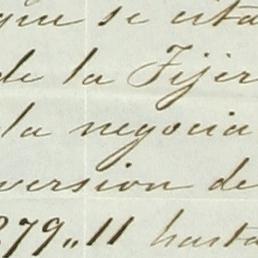 que se cita
de la Fijer
la negocia
version de
279,,11 hasta